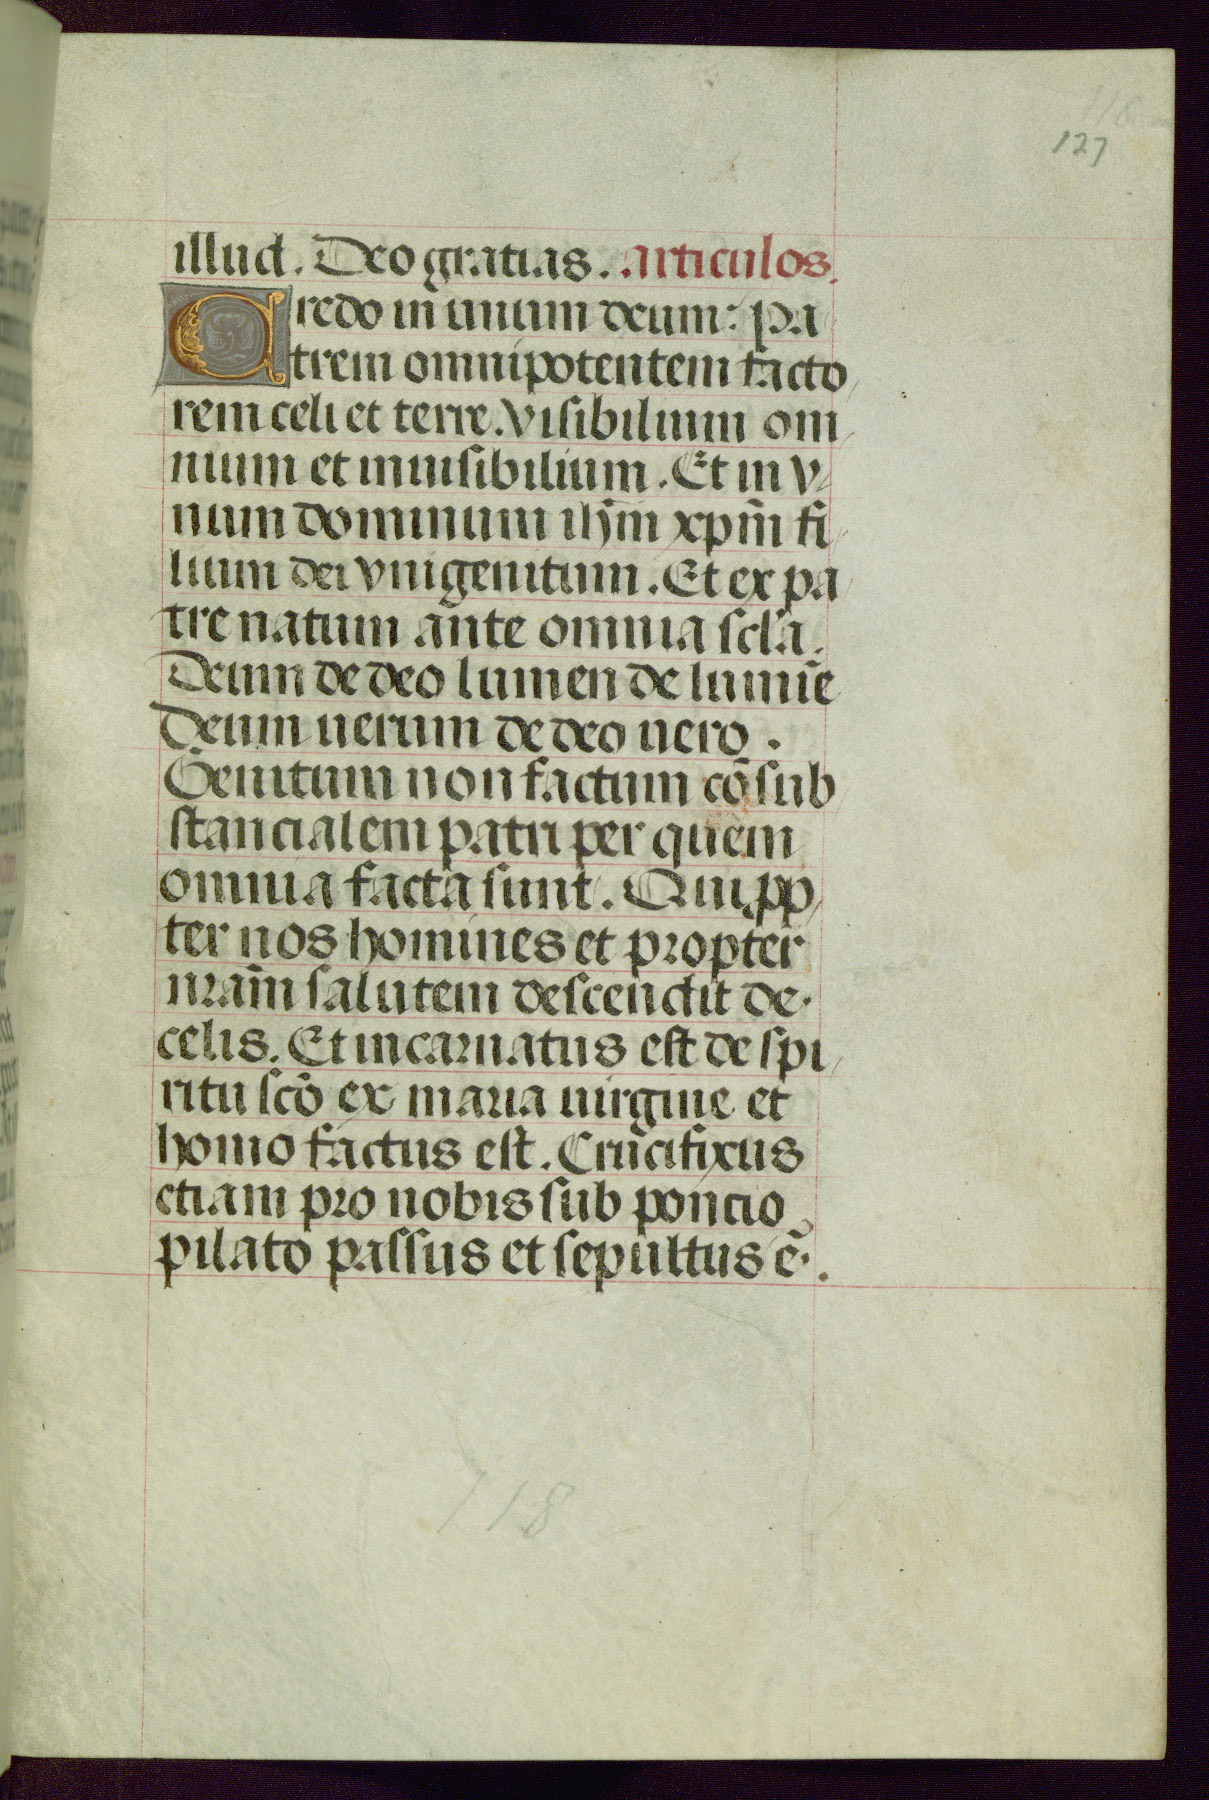 127
illud. Deo gratias. articulos.
Credo in unum deum: pa
trem omnipotentem facto
rem celi et terre. visibilium om
nium et inuisibilium. Et in v
num dominum ihm̄ xpm̄ fi
lium dei vnigenitum. Et ex pa
tre natum ante omnia scl̄a.
Deum de deo lumen de lumīe
Deum uerum de deo uero.
Genitum non factum cōsub
stancialem patri per quem
omnia facta sunt. Qui pp
ter nos homines et propter
nr̄am salutem descendit de
celis. Et incarnatus est de spi
ritu scō ex maria uirgine et
homo factus est. Crucifixus
etiam pro nobis sub poncio
pilato passus et sepultus ē.
118